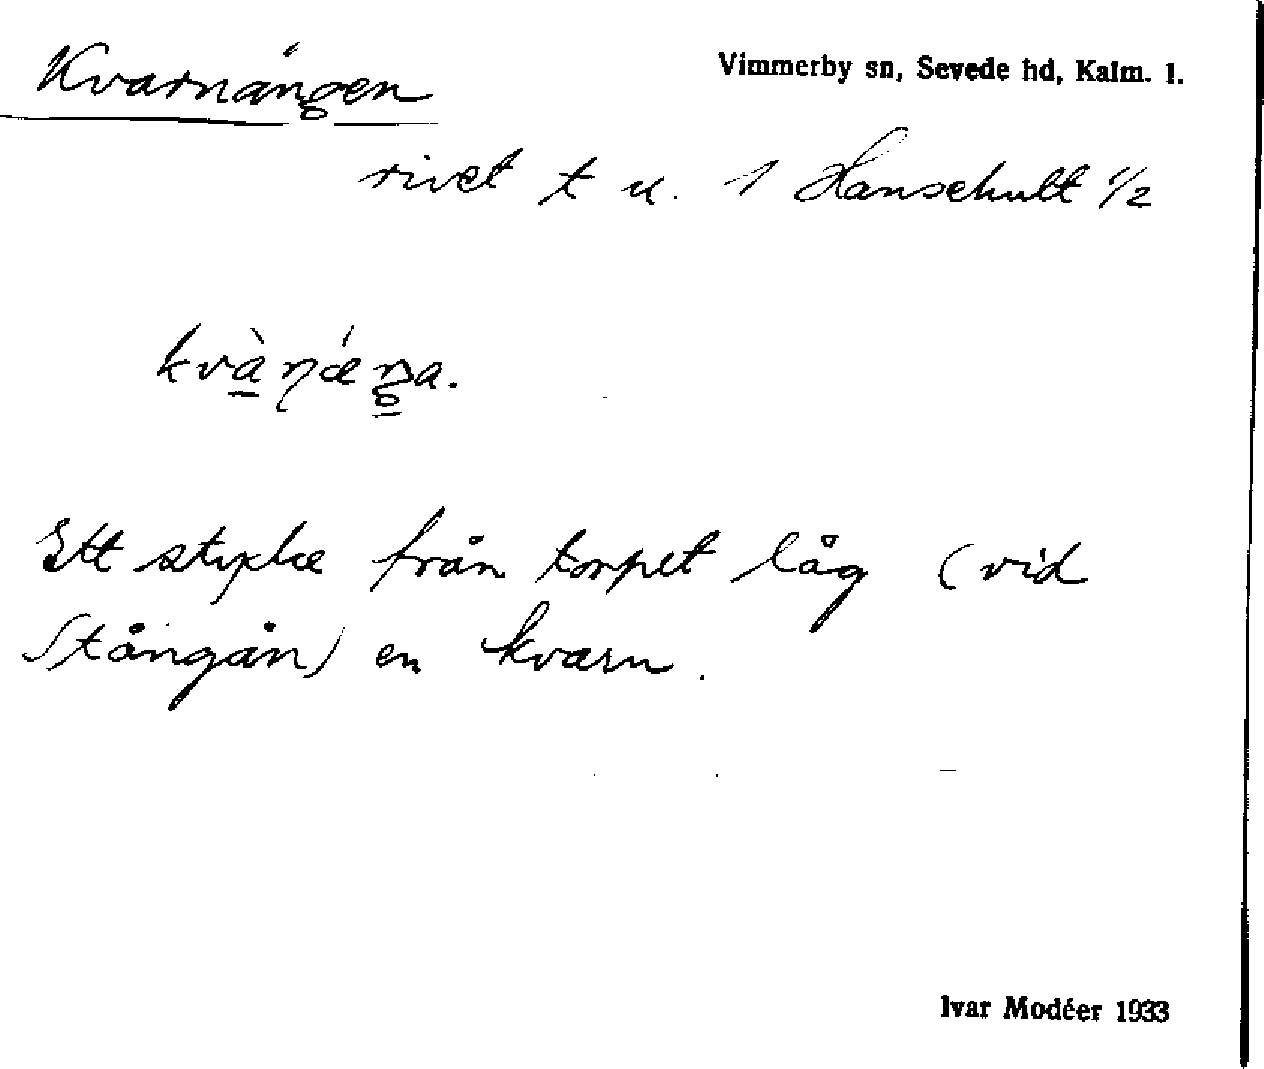 Kvarnängen
Vimmerby sn, Sevede hd, Kalm. l.
rivet t u. 1 Hanschult 1/2
kvàɳǽŋa.
Ett stycke från torpet låg (vid
Stångån) en kvarn.
Ivar Modéer 1933